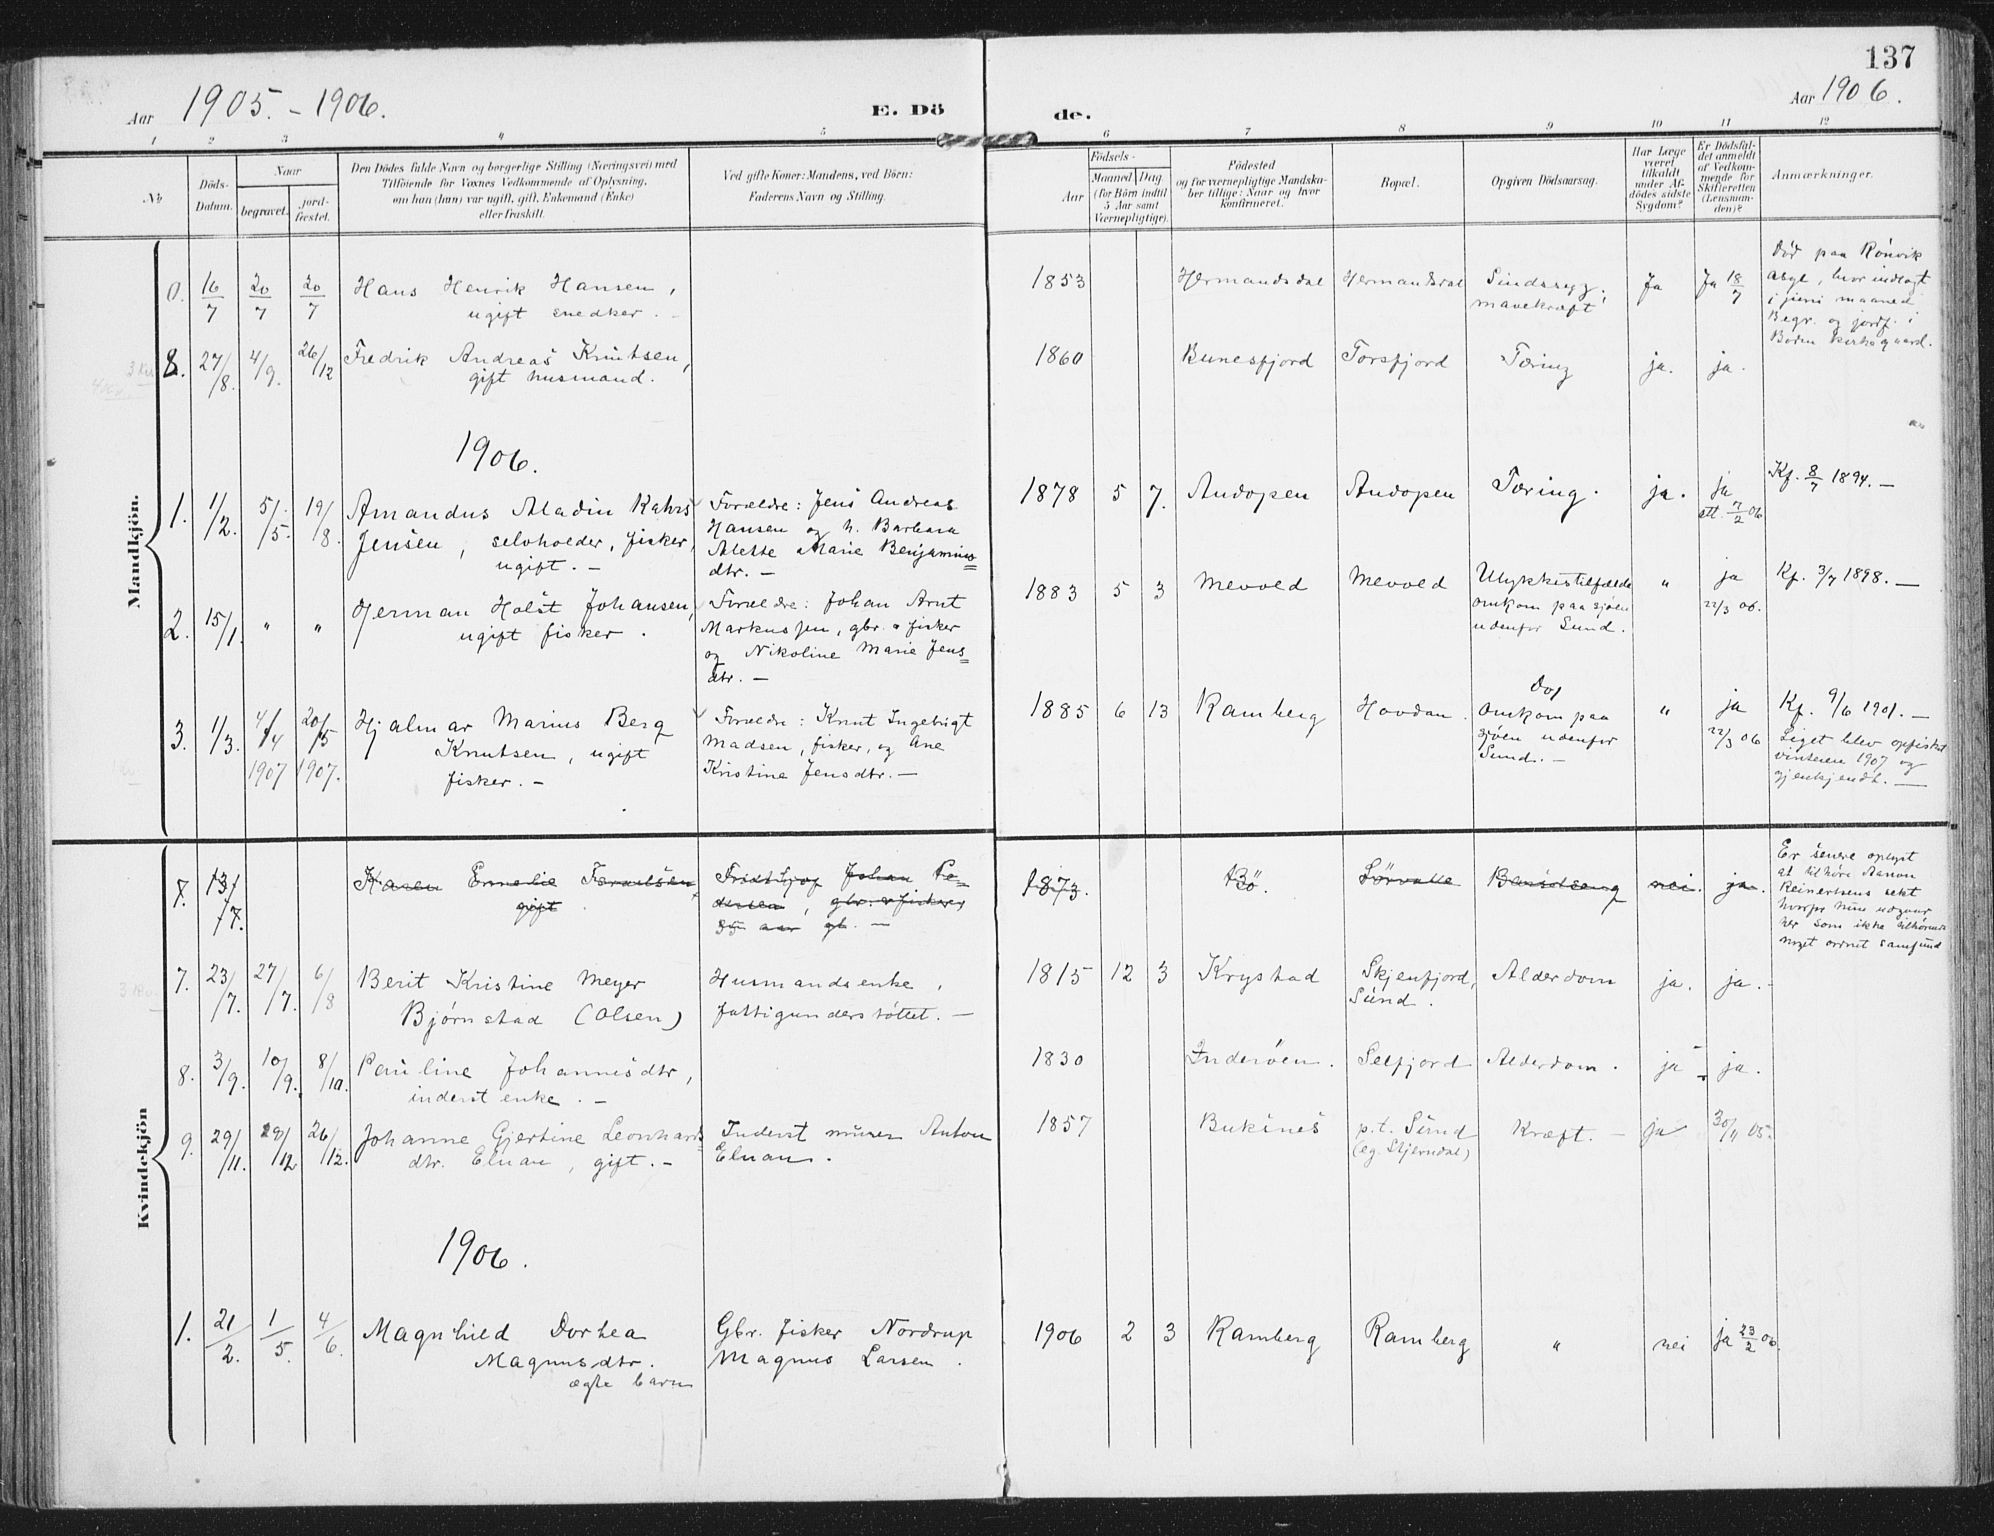 137
Aar 1905. - 1906.
E. Dö
de.
Aar 1906.
1 2 3 4 5 6 7 8 9 10 11 12
No
Döds-Datum.
Naar
begravet.
jord-fæstet.
Den Dödes fulde Navn og borgerlige Stilling (Næringsvei) med
Tilföiende for Voxnes Vedkommende af Oplysning,
om han (hun) var ugift, gift, Enkemand (Enke)
eller fraskilt.
Ved gifte Koner: Mandens, ved Börn:
Faderens Navn og Stilling.
Födsels-
Aar
Maaned Dag
(for Börn indtil
5 Aar samt
Værnepligtige).
Födested
og for værnepligtige Mandska-
ber tillige: Naar og hvor
konfirmeret.
Bopæl.
Opgiven Dödsaarsag.
Har Læge
været
tilkaldt
under Af-
dödes sidste
Sygdom?
Er Dödsfal-
det anmeldt
af Vedkom-
mende for
Skifteretten
(Lensman-
den)?
Anmærkninger.
Mandkjön.
0. 16/7 20/7 20/7 Hans Henrik Hansen,
ugift snedker. -
1853 Hermandsdal Hermandsdal Sindssyg,
mavekræft
Ja Ja 18/7
Död paa Rönvik
Asyl, hvor indlagt
i juni maaned
Begr. og jordf. i
Bodin kirkegaard.
8. 27/8. 4/9. 26/12 Fredrik Andreas Knutsen,
gift husmand.
1860 Bunesfjord Torsfjord Tæring ja. ja.
1906.
1. 1/2. 5/5. 19/8. Amandus Aladin Kahrs
Jensen, selvholder, fisker,
ugift. -
Forældre: Jens Andreas
Hansen og h. Barbara
Alette Marie Benjamins=
dtr. -
1878 5 7. Andopen Andopen Tæring. ja. ja
att. 7/2 06
Kf. 8/7 1894. -
2. 15/1. " " Herman Holst Johansen,
ugift fisker.
Forældre: Johan Arnt
Markussen, gbr. & fisker
og Nikoline Marie Jens=
dtr. -
1883 5 3 Mevold Mevold Ulykkestilfælde
omkom paa sjöen
udenfor Sund.
" ja
22/3 06.
Kf. 3/7 1898. -
3. 1/3. 4/4 1907 20/5 1907. Hjalmar Marius Berg
Knutsen, ugift
fisker. -
Forældre: Knut Ingebrigt
Madsen, fisker, og Ane
Kristine Jensdtr. -
1885 6 13 Ramberg Hovdan. Do,
omkom paa
sjöen udenfor
Sund. -
" ja
22/3 06
Kf. 9/6 1901. -
Liget blev opfisket
vinteren 1907 og
gjenkjendt. -
Kvindekjön
7. 13/7. Karen Emelie
gift
Fridthjof Johan Pe-
dersen, gbr. & fisker,
35 aar gl. -
1873. Bö. Sörvatte Barselseng nei. ja.
Er senere oplyst
at tilhöre Aanon
Reinertsens sekt
hvorfor hun udgaar
her som ikke tilhörende
noget ordnet samfund
7. 23/7. 27/7. 6/8 Berit Kristine Meyer
Bjørnstad (Olsen)
Husmandsenke,
fattigunderstöttet. -
1815 12 3 Krystad Skjenfjord,
Sund.
Alderdom ja. ja. -
8. 3/9. 10/9. 8/10. Pauline Johannisdtr,
inderst enke. -
1830 Inderöen. Selfjord Alderdom. ja ja.
9. 29/11. 29/12 26/12. Johanne Gjertine Leonhards
dtr. Elvan, gift. -
Inderst murer Anton
Elvan.
1857 Buksnes p.t. Sund
(eg. Stjerndal)
Kræft. - ja 30/11 05.
1906.
1. 21/2. 1/5. 4/6. Magnhild Dorthea
Magnusdtr.
ægte barn
Gbr. fisker Nordrup
Magnus Larsen.
1906 2 3 Ramberg Ramberg " nei ja 23/2 06.